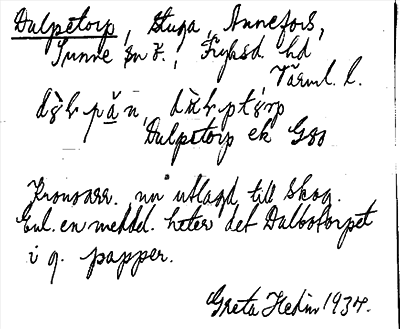 Dulpetorp, stuga, Annefors,
Sunne sn ö., Fryksd. hd
Värml. l.
Dulpetorp ek G80
Kronoarr. nu utlagd till skog.
Enl. en meddel. heter det Dalbotorpet
i g. papper.
Greta Hedin 1934.